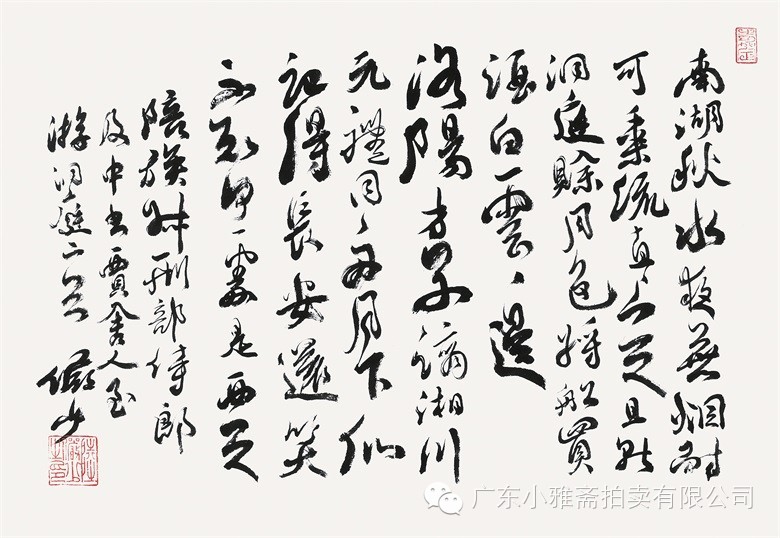 南湖秋水夜無烟耐
可乘流直上天且就
洞庭賒月色將船買
酒白雲邊
洛陽才子謫湘川
元禮同舟月下仙
記得長安還笑
不知何處是西天
陪族叔刑部侍郎
及中書賈舍人至
游洞庭二首 儼少
广东小雅斋拍卖有限公司